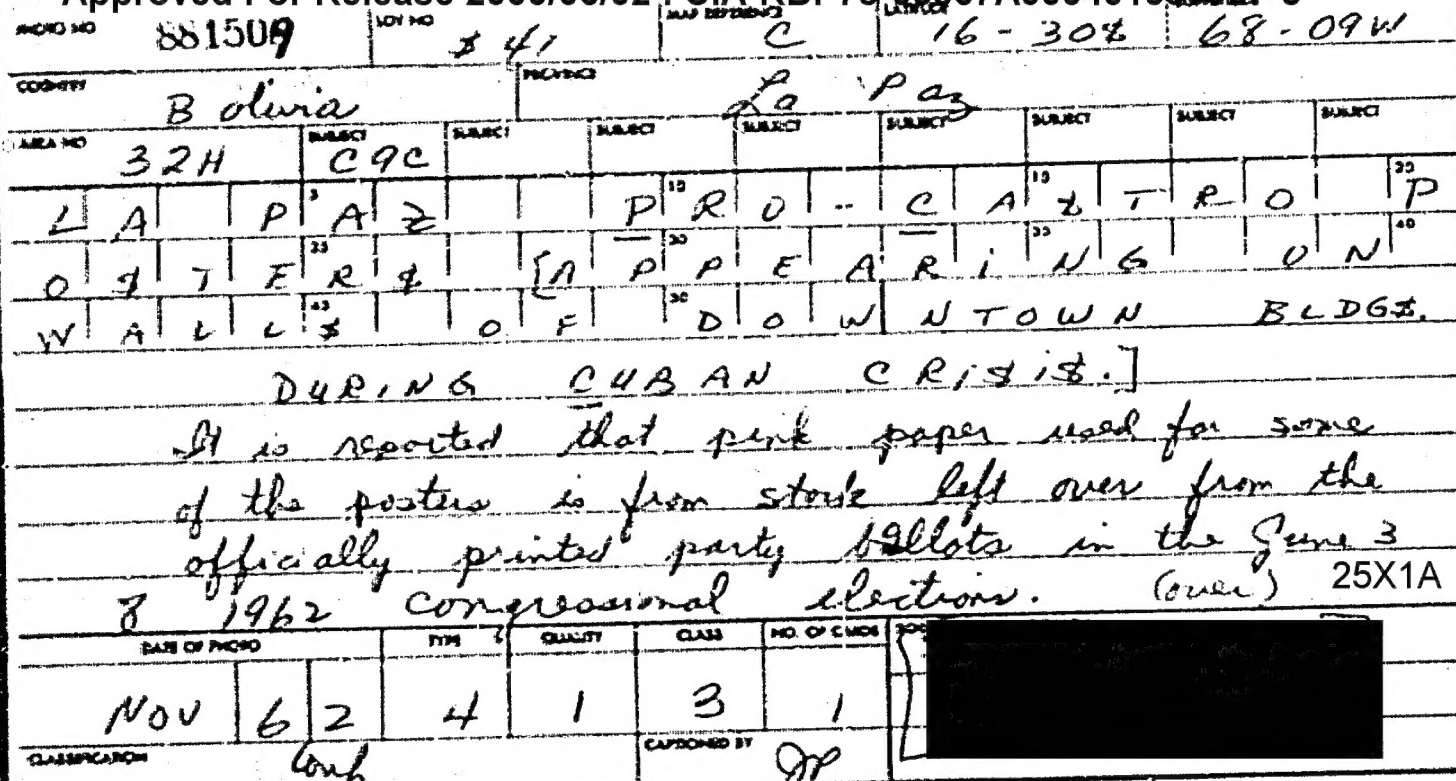 Approved For Release
PHOTO NO 881509 LOT NO $ 41 MAP REFERENCE C LATITUDE 16-30$ 68-09W
COUNTRY Bolivia PROVINCE La Paz
AREA NO 32H SUBJECT C9C SUBJECT SUBJECT SUBJECT SUBJECT SUBJECT SUBJECT SUBJECT
LA PAZ PRO-CA$TRO P
O$TER$ [APPEARiNG ON
WALL$ OF DOWNTOWN BLDG$.
DURiNG CUBAN CRi$i$.]
It is reported that pink paper used for some
of the posters is from stock left over from the
officially printed party ballots in the June 3
1962 Congressional elections. (over) 25X1A
DATE OF PHOTO TYPE QUALITY CLASS NO. OF CARDS
NOV 62 4 1 3 1
CLASSIFICATION Conf CAPTIONED BY